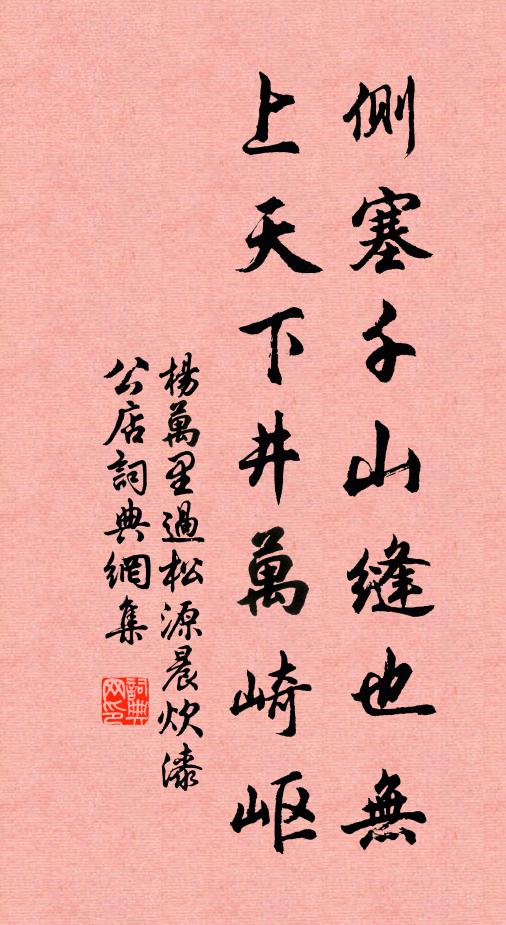 側塞千山縫也無
上天下井萬崎岖
楊萬里過松源晨炊漆
公店詞典網集
詞典
网印